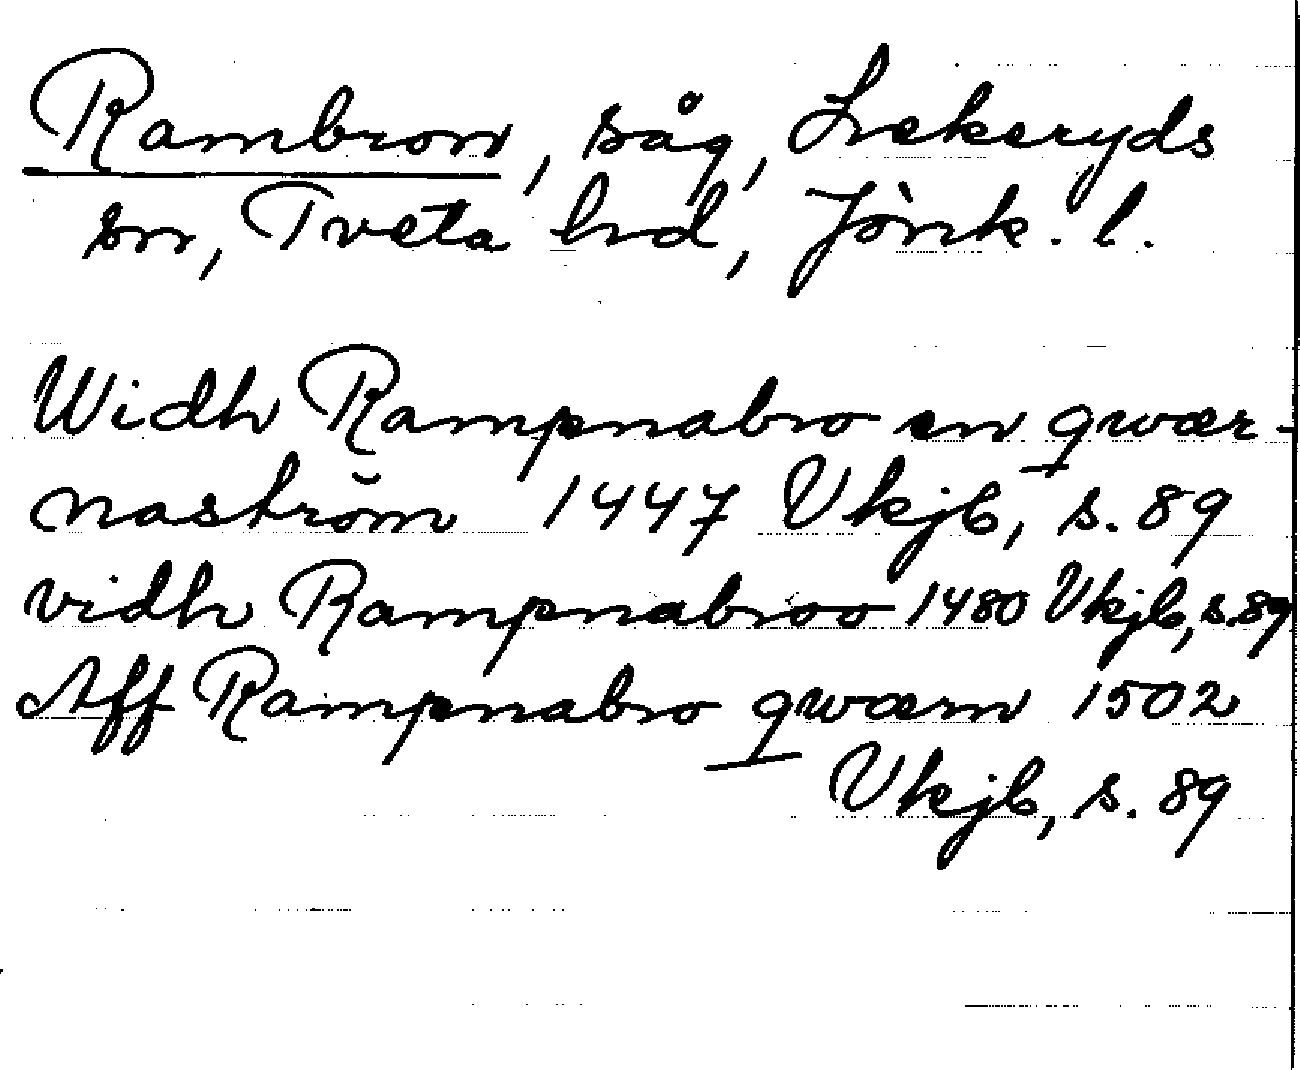 Rambron, såg, Lekeryds
sn, Tveta hd, Jönk. l.
Widh Rampnabro en qwær-
naström 1447 Vkjb, s. 89
vidh Rampnabroo 1480 Vkjb, s. 89
Aff Rampnabro qwærn 1502
Vkjb, s. 89